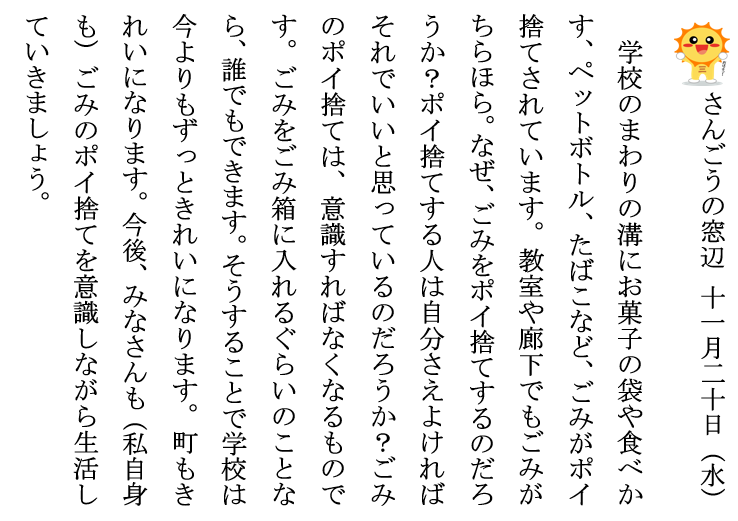 さんごうの窓辺 十一月二十日(水)
学校のまわりの溝にお菓子の袋や食べか
す、ペットボトル、たばこなど、ごみがポイ
捨てされています。教室や廊下でもごみが
ちらほら。なぜ、ごみをポイ捨てするのだろ
うか?ポイ捨てする人は自分さえよければ
それでいいと思っているのだろうか?ごみ
のポイ捨ては、意識すればなくなるもので
す。ごみをごみ箱に入れるぐらいのことな
ら、誰でもできます。そうすることで学校は
今よりもずっときれいになります。町もき
れいになります。今後、みなさんも(私自身
も)ごみのポイ捨てを意識しながら生活し
ていきましょう。